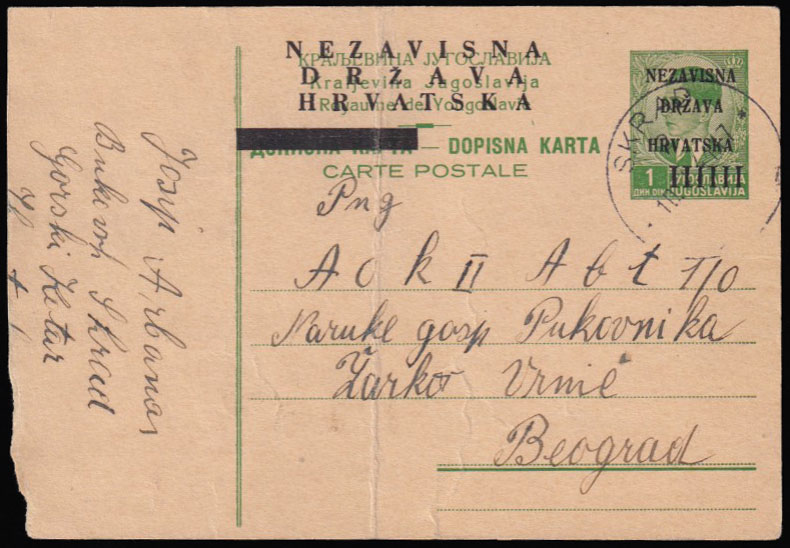 NEZAVISNA
DRŽAVA
HRVATSKA
КРАЉЕВИНА ЈУГОСЛАВИЈА
Kraljevina Jugoslavija
Royaume de Yougoslavie
— DOPISNA KARTA
CARTE POSTALE
NEZAVISNA
DRŽAVA
HRVATSKA
1
ДИН DIN
ЈУГОСЛАВИЈА
JUGOSLAVIJA
SKRAD
Png
Aok II Abt 1/0
Na ruke gosp Pukovnika
Žarko
Beograd
Josip Arbanas
Skrad
Gorski Kotar